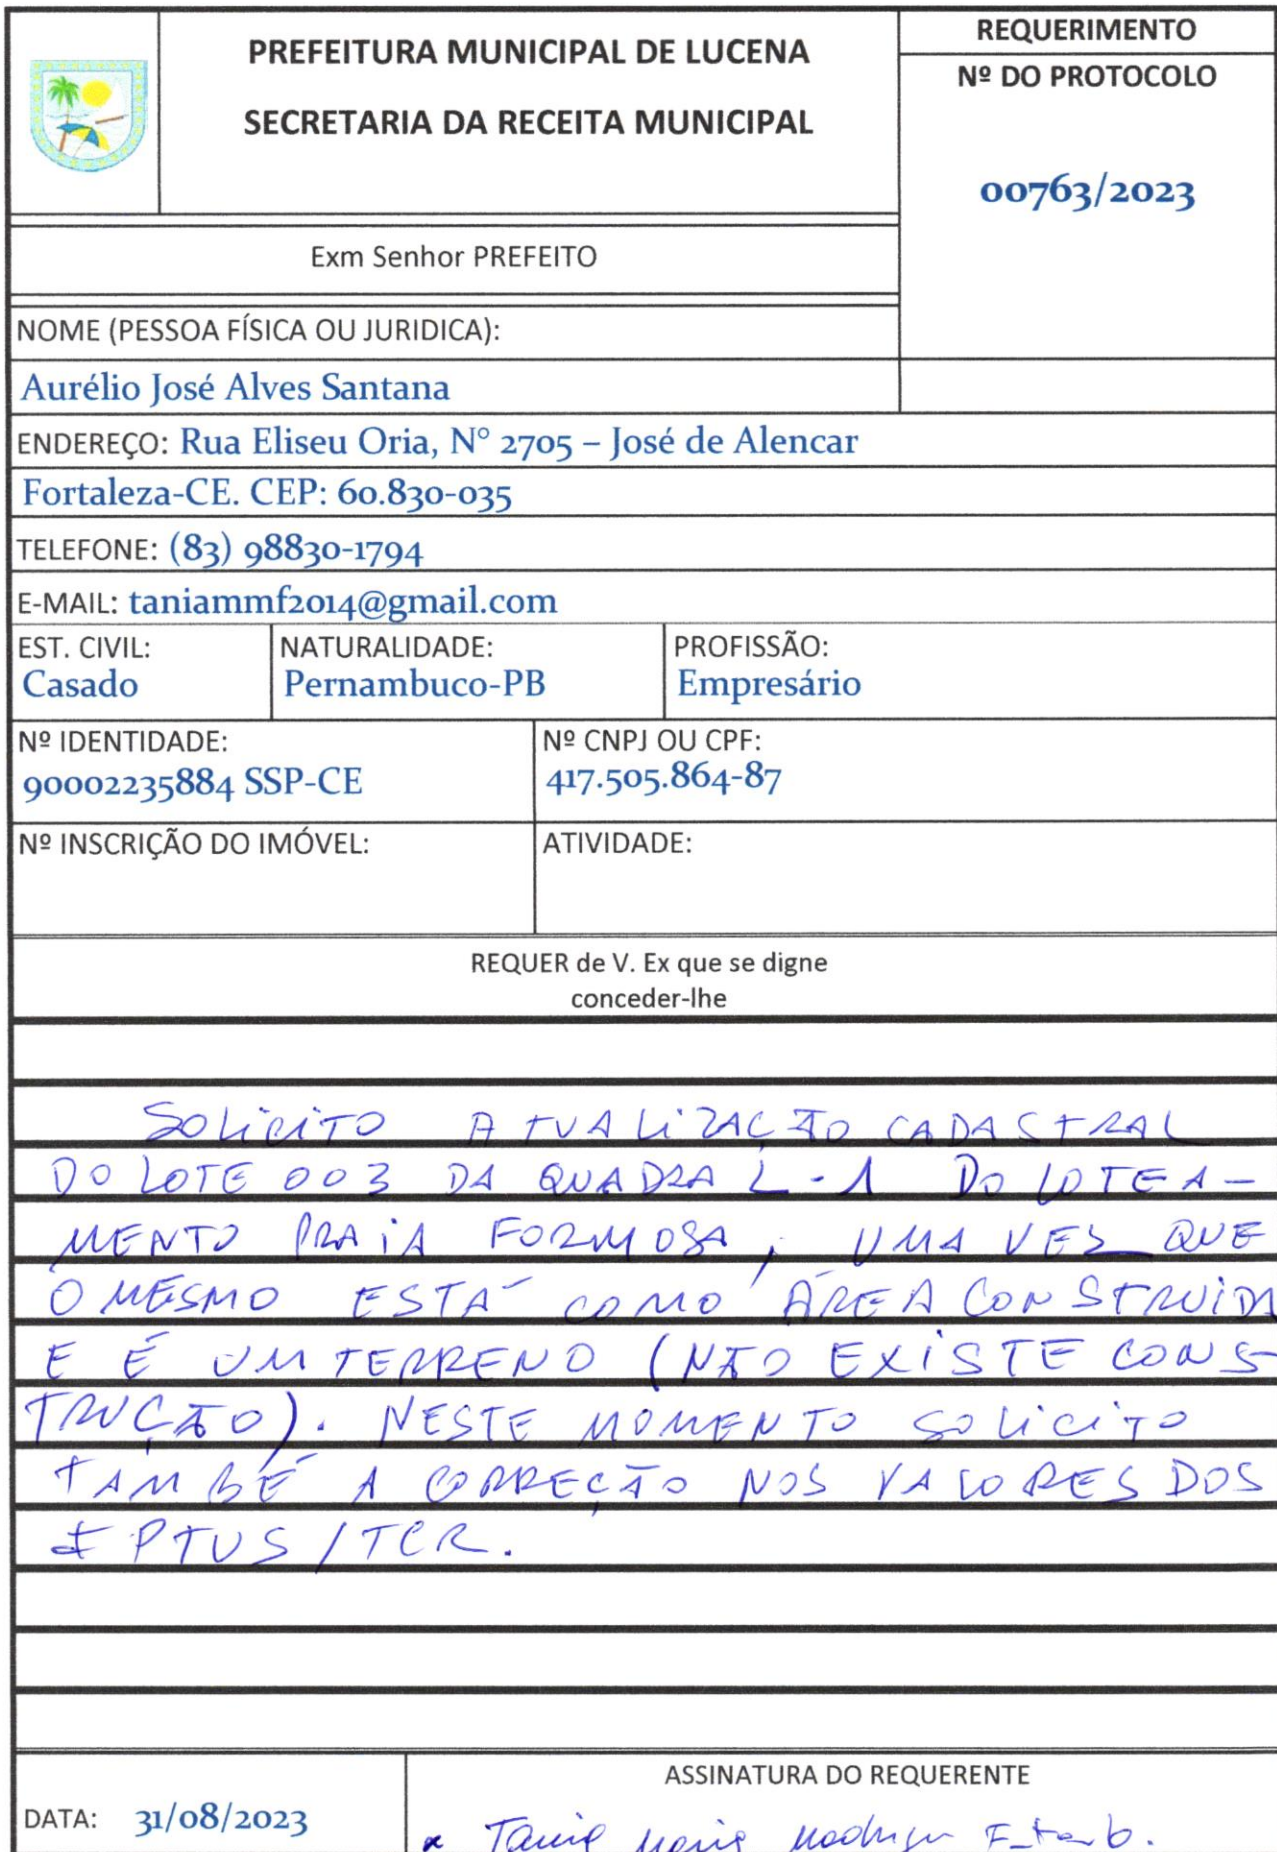 PREFEITURA MUNICIPAL DE LUCENA
SECRETARIA DA RECEITA MUNICIPAL
REQUERIMENTO
Nº DO PROTOCOLO
00763/2023
Exm Senhor PREFEITO
NOME (PESSOA FÍSICA OU JURIDICA):
Aurélio José Alves Santana
ENDEREÇO: Rua Eliseu Oria, N° 2705 – José de Alencar
Fortaleza-CE. CEP: 60.830-035
TELEFONE: (83) 98830-1794
E-MAIL: taniammf2014@gmail.com
EST. CIVIL: NATURALIDADE: PROFISSÃO:
Casado Pernambuco-PB Empresário
Nº IDENTIDADE: Nº CNPJ OU CPF:
90002235884 SSP-CE 417.505.864-87
Nº INSCRIÇÃO DO IMÓVEL: ATIVIDADE:
REQUER de V. Ex que se digne
conceder-lhe
SOLICITO ATUALIZAÇÃO CADASTRAL
DO LOTE 003 DA QUADRA L-1 DO LOTEA-
MENTO PRAIA FORMOSA, UMA VES QUE
O MESMO ESTÁ COMO ÁREA CONSTRUIDA
E É UM TERRENO (NÃO EXISTE CONS-
TRUÇÃO). NESTE MOMENTO SOLICITO
TAMBÉ A CORREÇÃO NOS VALORES DOS
IPTUS/TCR.
ASSINATURA DO REQUERENTE
DATA: 31/08/2023
Tania Maria